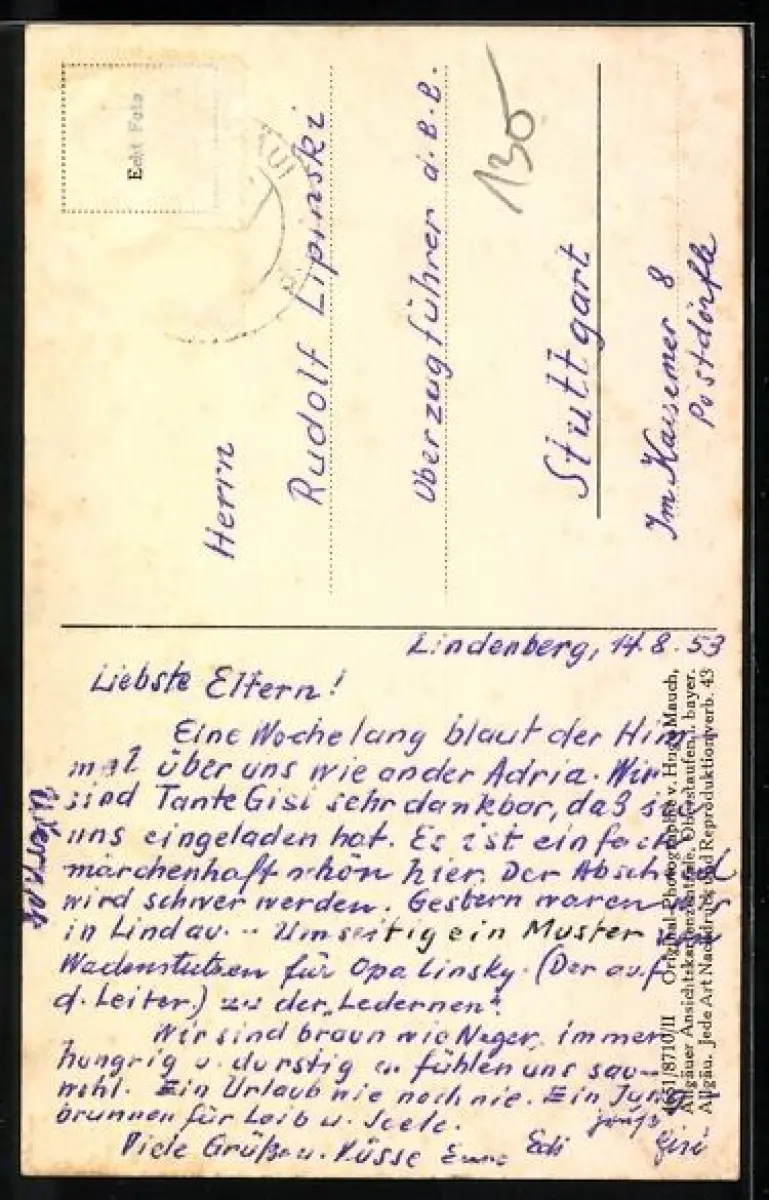 Echt Foto
130
Herrn
Rudolf Lipinski
Oberzugführer d. B. B.
Stuttgart
Im Kaisemer 8
Postdörfle
Lindenberg, 14.8.53
Liebste Eltern!
Eine Woche lang blaut der Him
mel über uns wie an der Adria. Wir
sind Tante Gisi sehr dankbar, daß sie
uns eingeladen hat. Es ist einfach
märchenhaft schön hier. Der Abschied
wird schwer werden. Gestern waren wir
in Lindau. - Umseitig ein Muster von
Wadenstutzen für Opa Linsky. (Der auf
d. Leiter.) zu der "Ledernen".
Wir sind braun wie Neger, immer
hungrig u. durstig u. fühlen uns sau-
wohl. Ein Urlaub wie noch nie. Ein Jung
brunnen für Leib u. Seele.
Viele Grüße u. Küsse Eure Edi
Gisi
4951/8710/II Original-Photographie v. Hugo Mauch,
Allgäuer Ansichtskartenzentrale, Oberstaufen i. bayer.
Allgäu. Jede Art Nachdruck und Reproduktion verb. 43